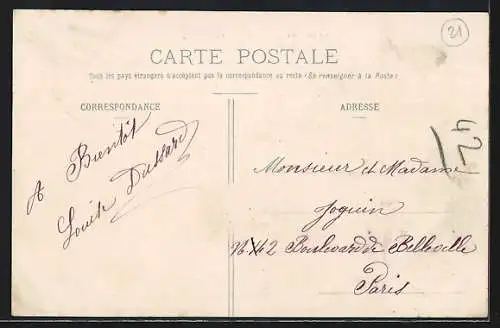 21
CARTE POSTALE
Tous les pays étrangers n'acceptent pas la correspondance au recto (Se renseigner à la Poste)
CORRESPONDANCE
A Bientôt
Louise
ADRESSE
42
Monsieur et Madame
Joguin
42 Boulevard de Belleville
Paris